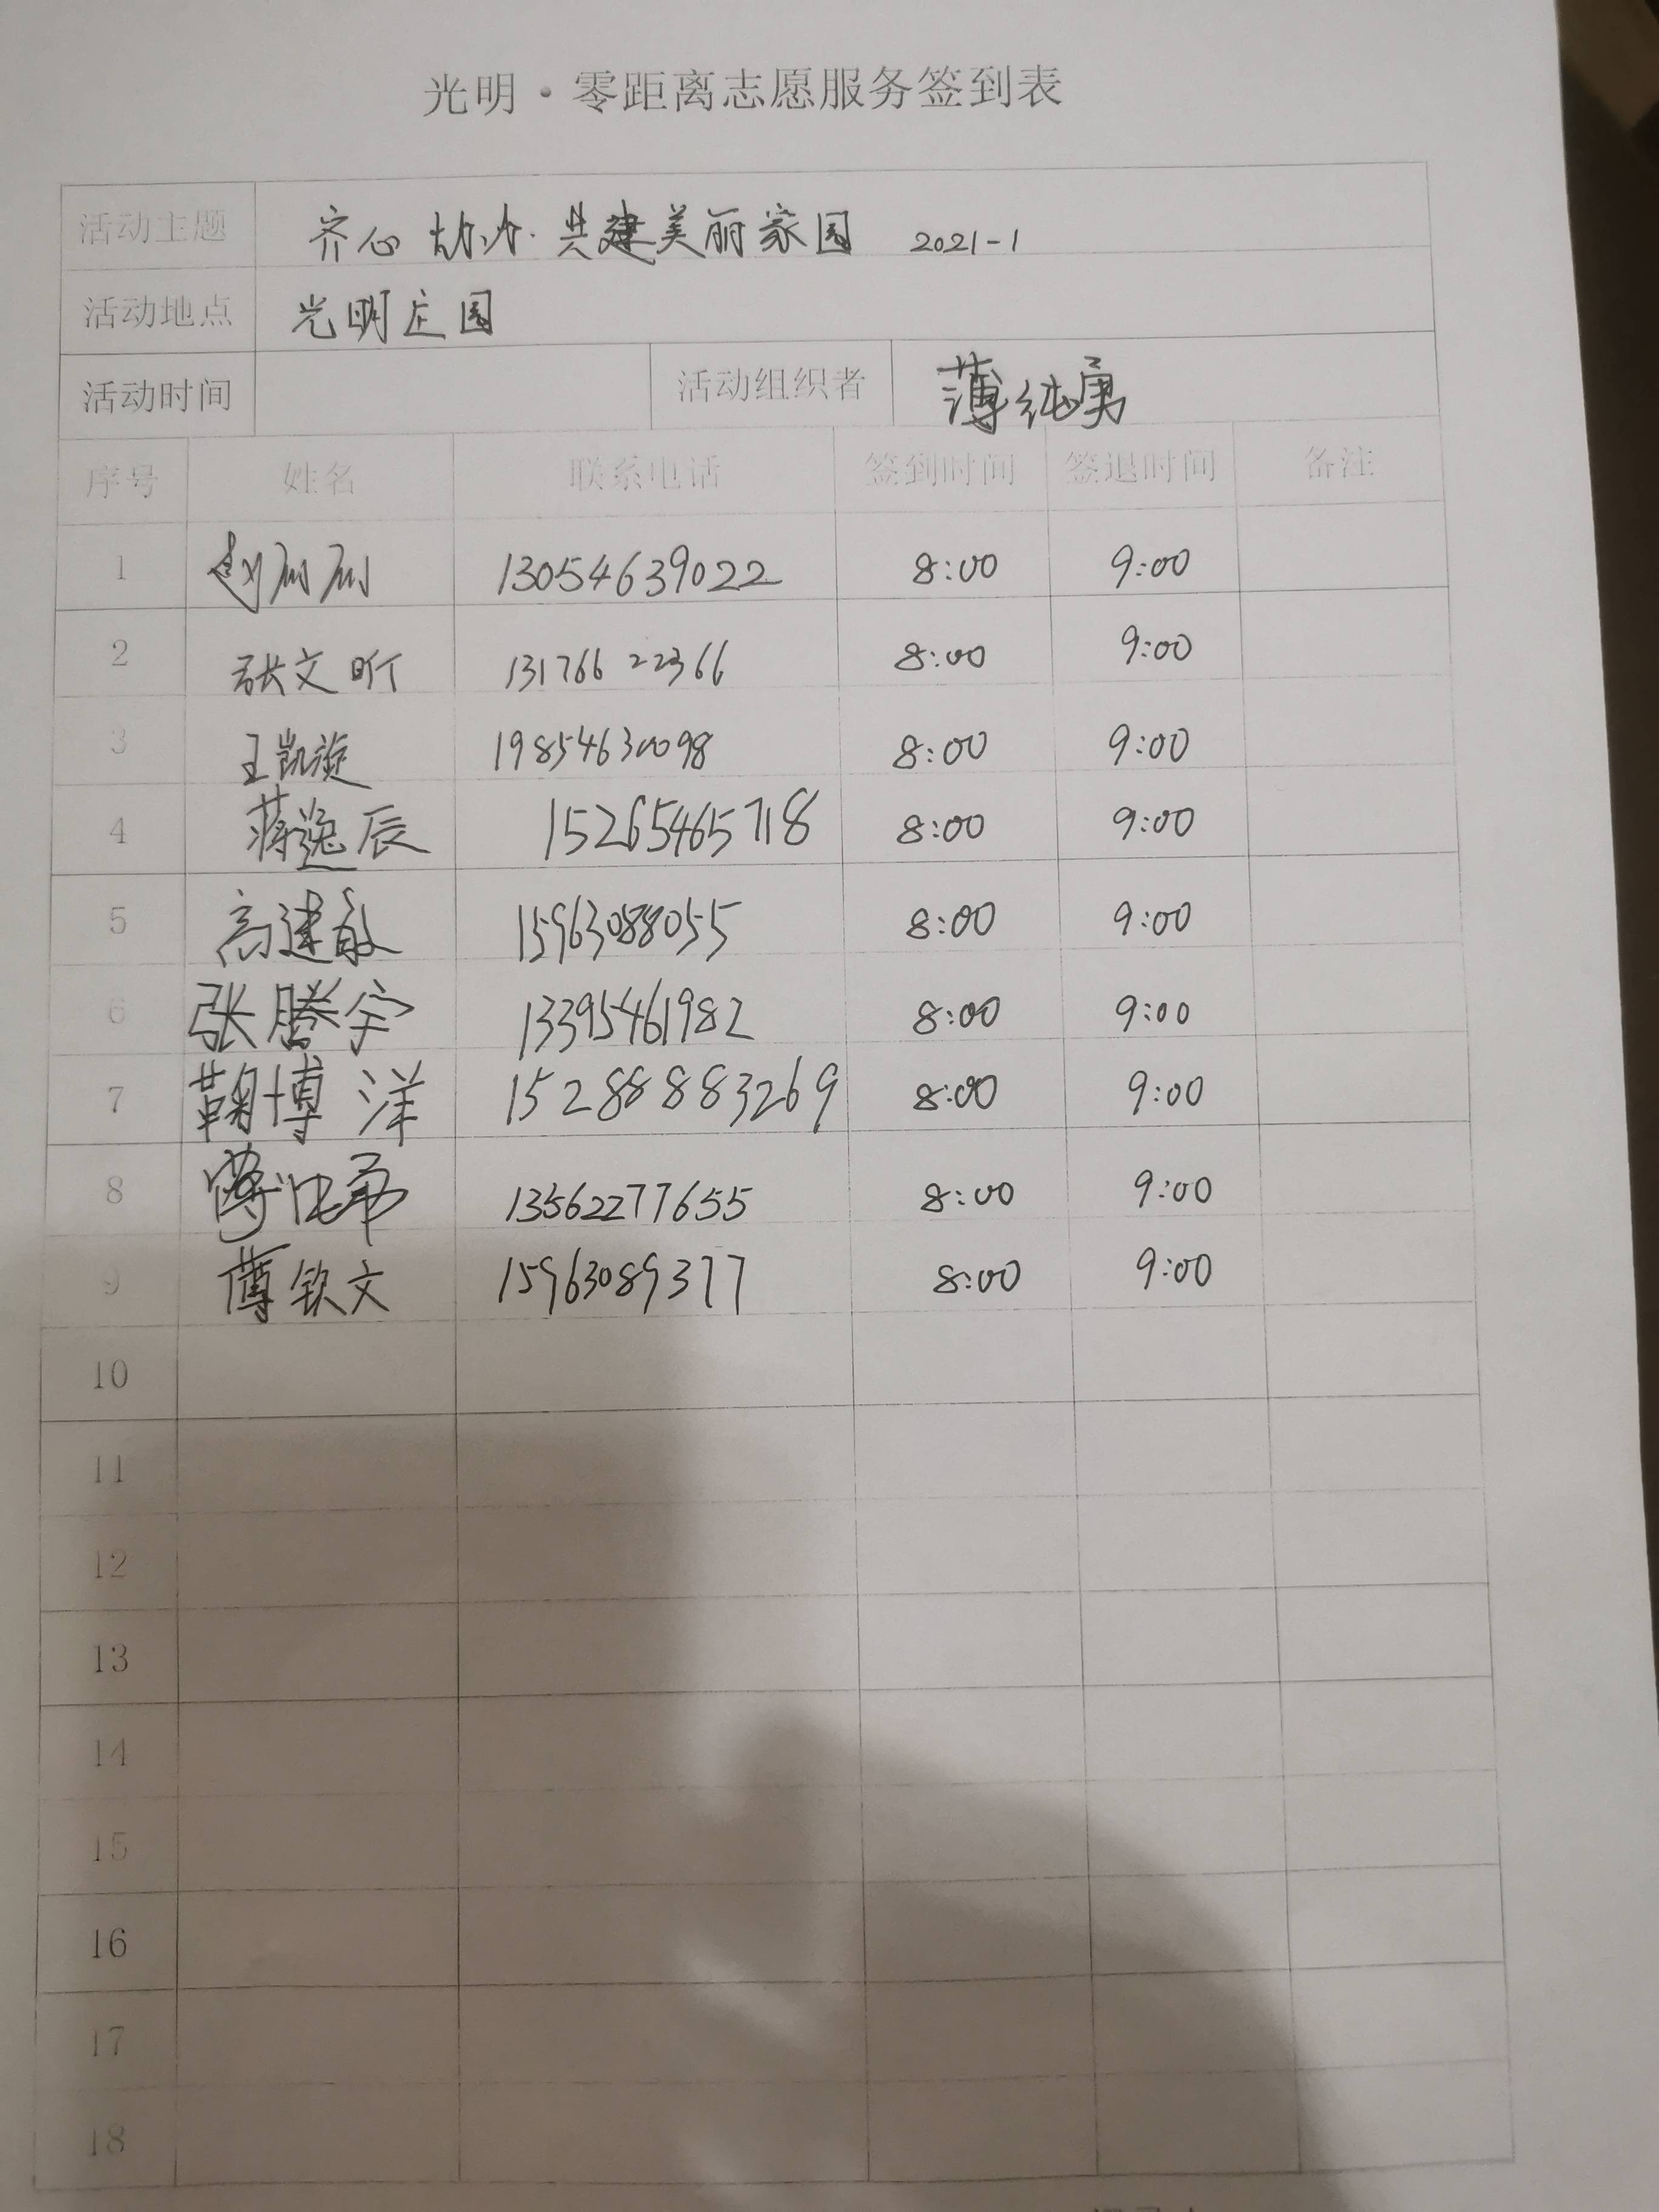 光明·零距离志愿服务签到表
活动主题 齐心协办·共建美丽家园 2021-1
活动地点 光明庄园
活动时间 活动组织者 薄纯勇
序号 姓名 联系电话 签到时间 签退时间 备注
1 赵丽丽 13054639022 8:00 9:00
2 张文昕 13176622366 8:00 9:00
3 王凯旋 19854630098 8:00 9:00
4 蒋逸辰 15265465718 8:00 9:00
5 高建敏 15963088055 8:00 9:00
6 张腾宇 13395461982 8:00 9:00
7 鞠博洋 15288883269 8:00 9:00
8 13562277655 8:00 9:00
9 薄钦文 15963089377 8:00 9:00
10
11
12
13
14
15
16
17
18